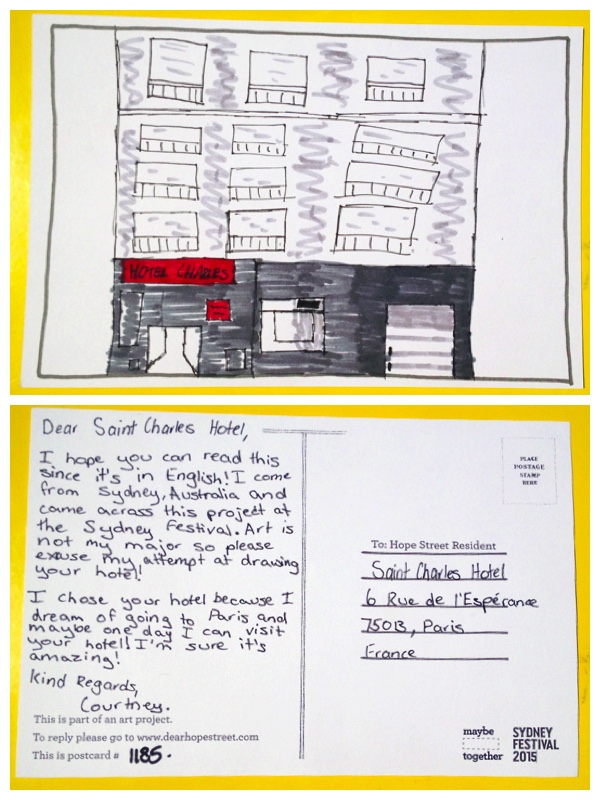 HOTEL CHARLES
Dear Saint Charles Hotel,
I hope you can read this
since it's in English! I come
from Sydney, Australia and
came across this project at
the Sydney Festival. Art is
not my major so please
excuse my attempt at drawing
your hotel!
I chose your hotel because I
dream of going to Paris and
maybe one day I can visit
your hotel! I'm sure it's
amazing!
Kind Regards,
Courtney.
This is part of an art project.
To reply please go to www.dearhopestreet.com
This is postcard # 1185.
PLACE
POSTAGE
STAMP
HERE
To: Hope Street Resident
Saint Charles Hotel
6 Rue de l'Espérance
75013, Paris
France
maybe
together
SYDNEY
FESTIVAL
2015